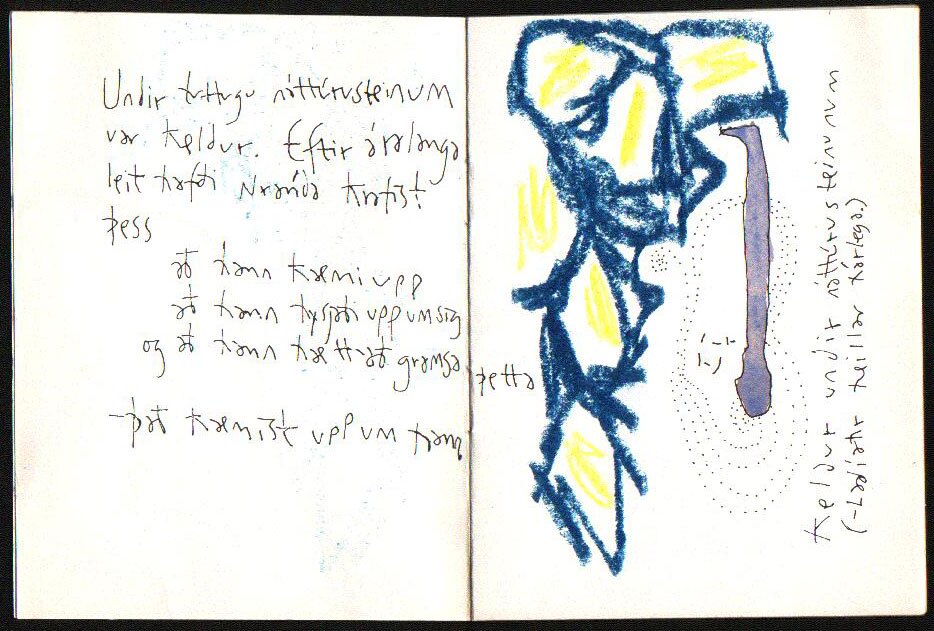 Undir tuttugu náttúrusteinum
var Keldur. Eftir áralanga
leit hafði krafist
þess
að hann kæmi upp
að hann hysjaði upp um sig
og að hann hætti að gramsa þetta
-það kæmist upp um hann
Keldur undir náttúrusteinum